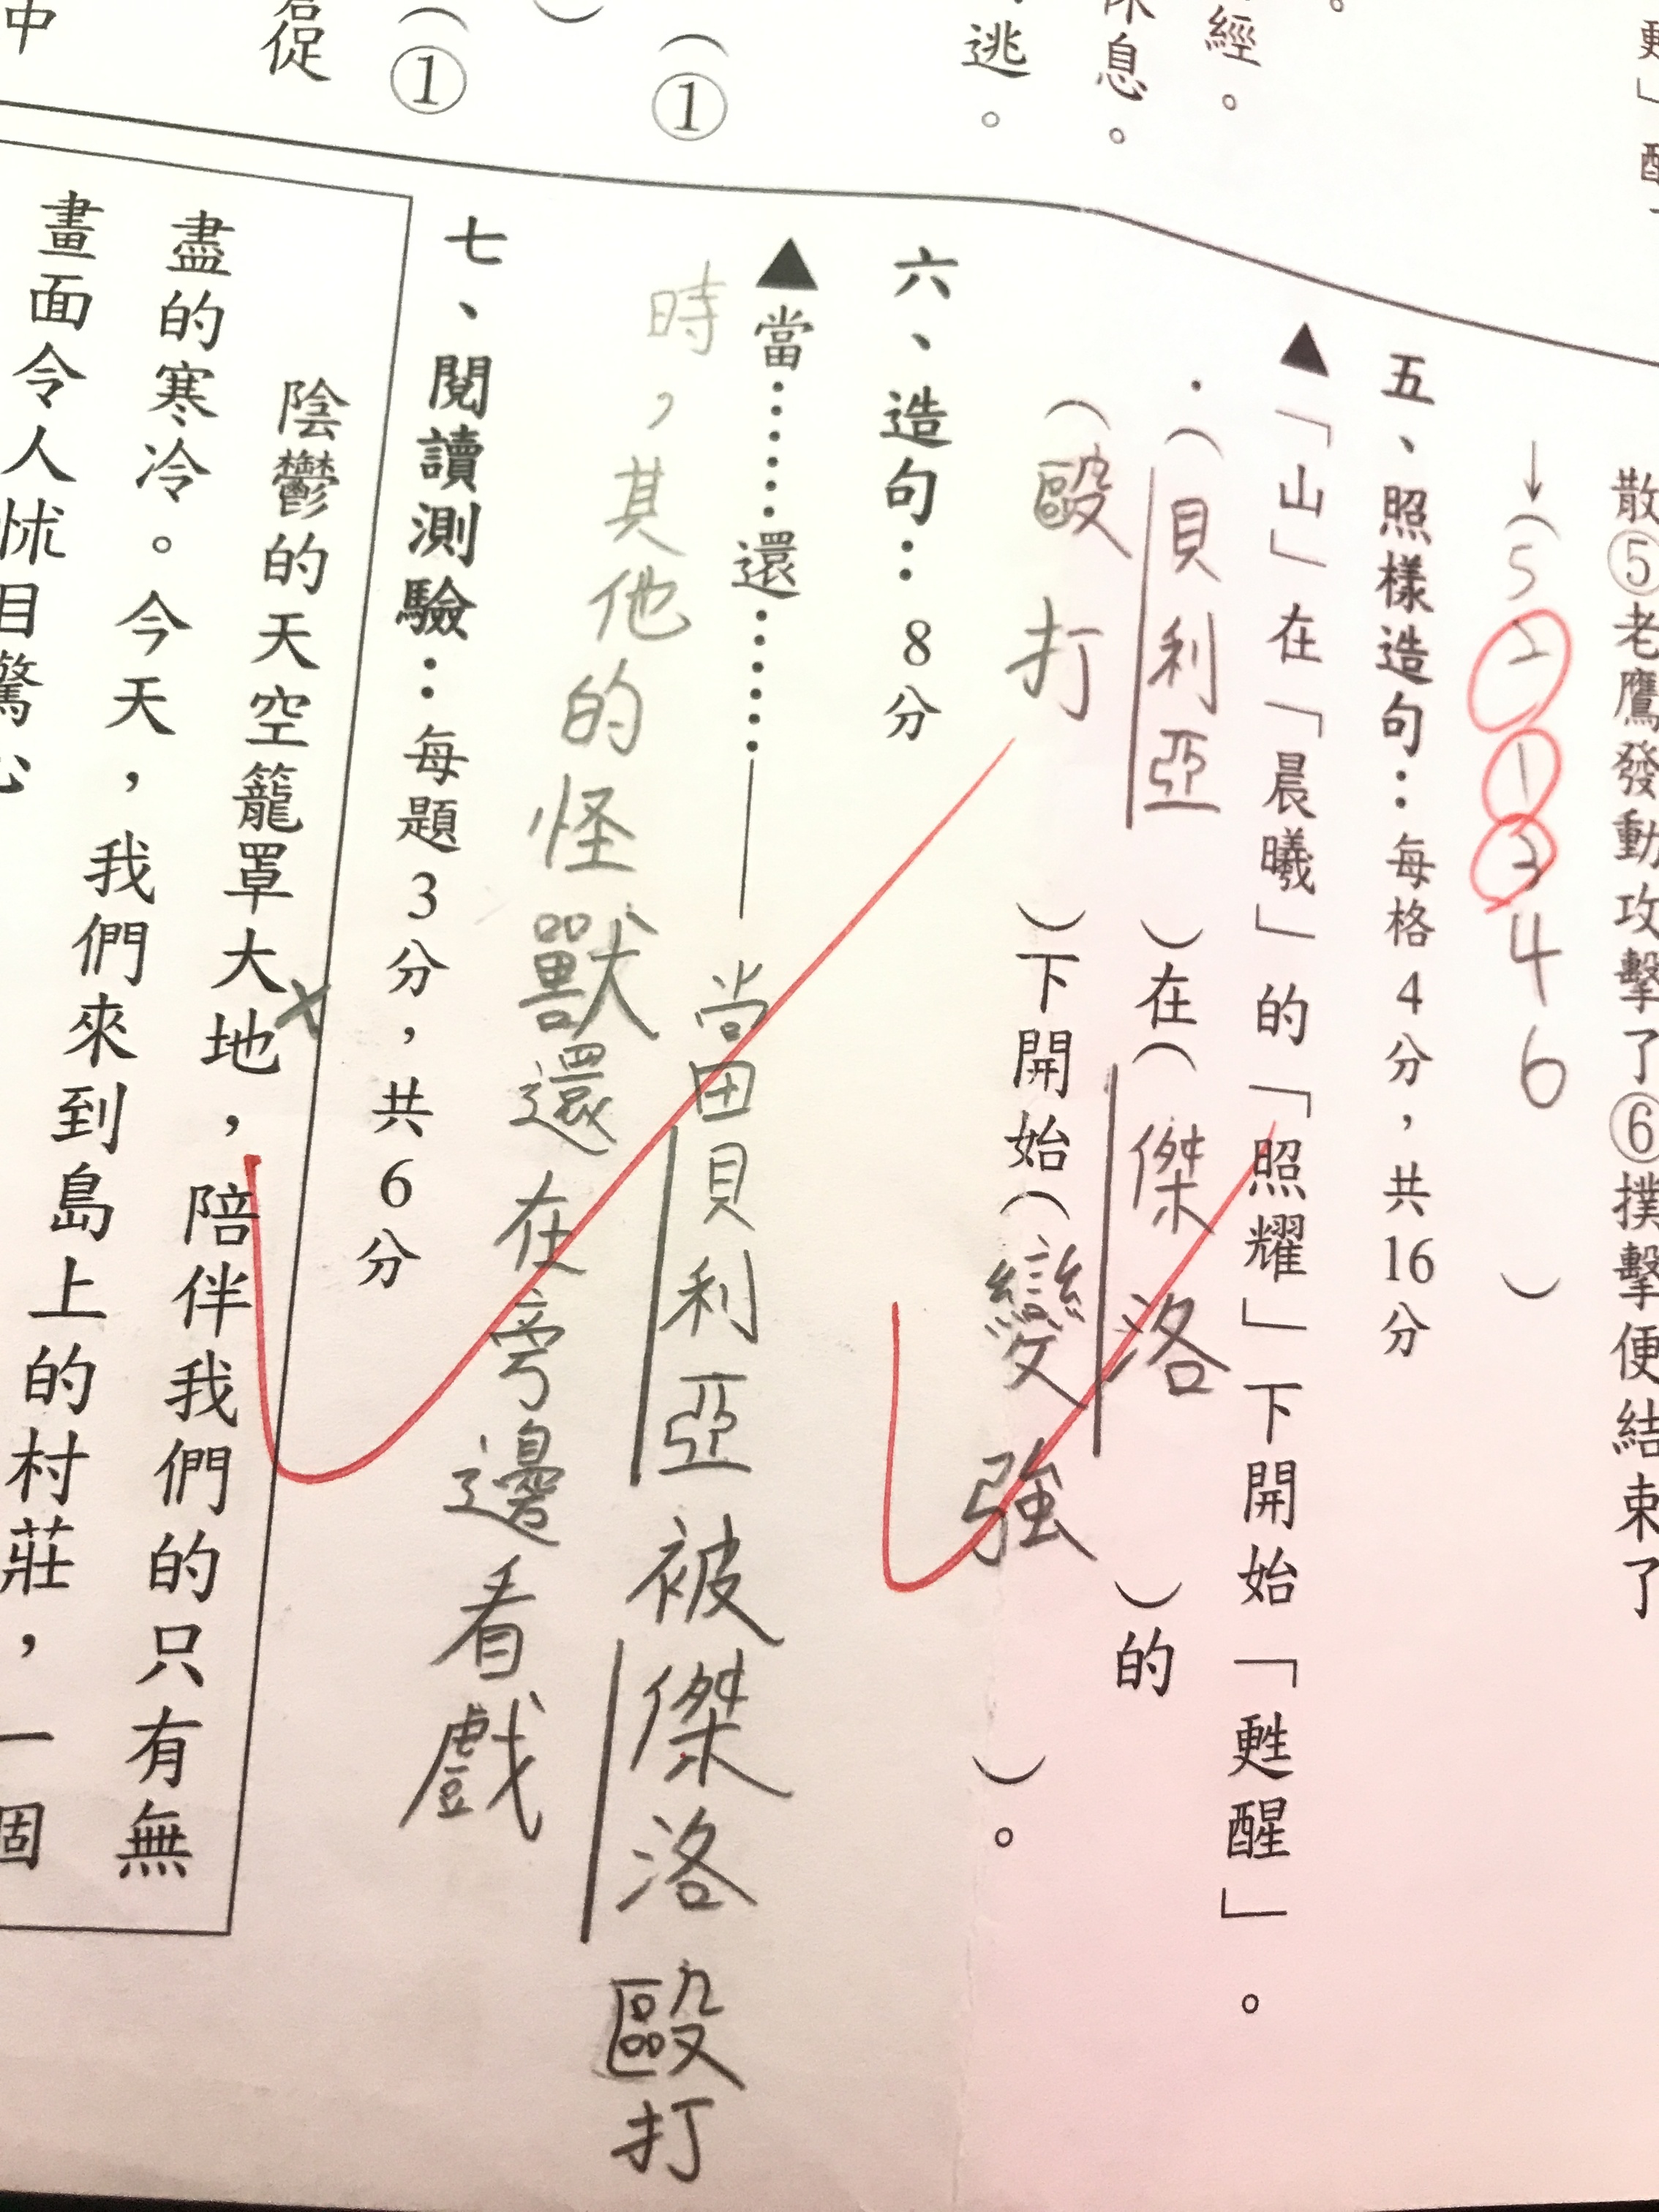 甦」醒、
。
經。
休息。
逃。
(①
(①
促
中
散⑤老鷹發動攻擊了⑥撲擊便結束了
→(521346)
五、照樣造句:每格4分,共16分
▲「山」在「晨曦」的「照耀」下開始「甦醒」。
.(貝利亞)在(傑洛)的
(毆打)下開始(變強)。
六、造句:8分
▲當……還……——當貝利亞被傑洛毆打
時,其他的怪獸還在旁邊看戲
七、閱讀測驗:每題3分,共6分
陰鬱的天空籠罩大地,陪伴我們的只有無
盡的寒冷。今天,我們來到島上的村莊,一個
畫面令人怵目驚心